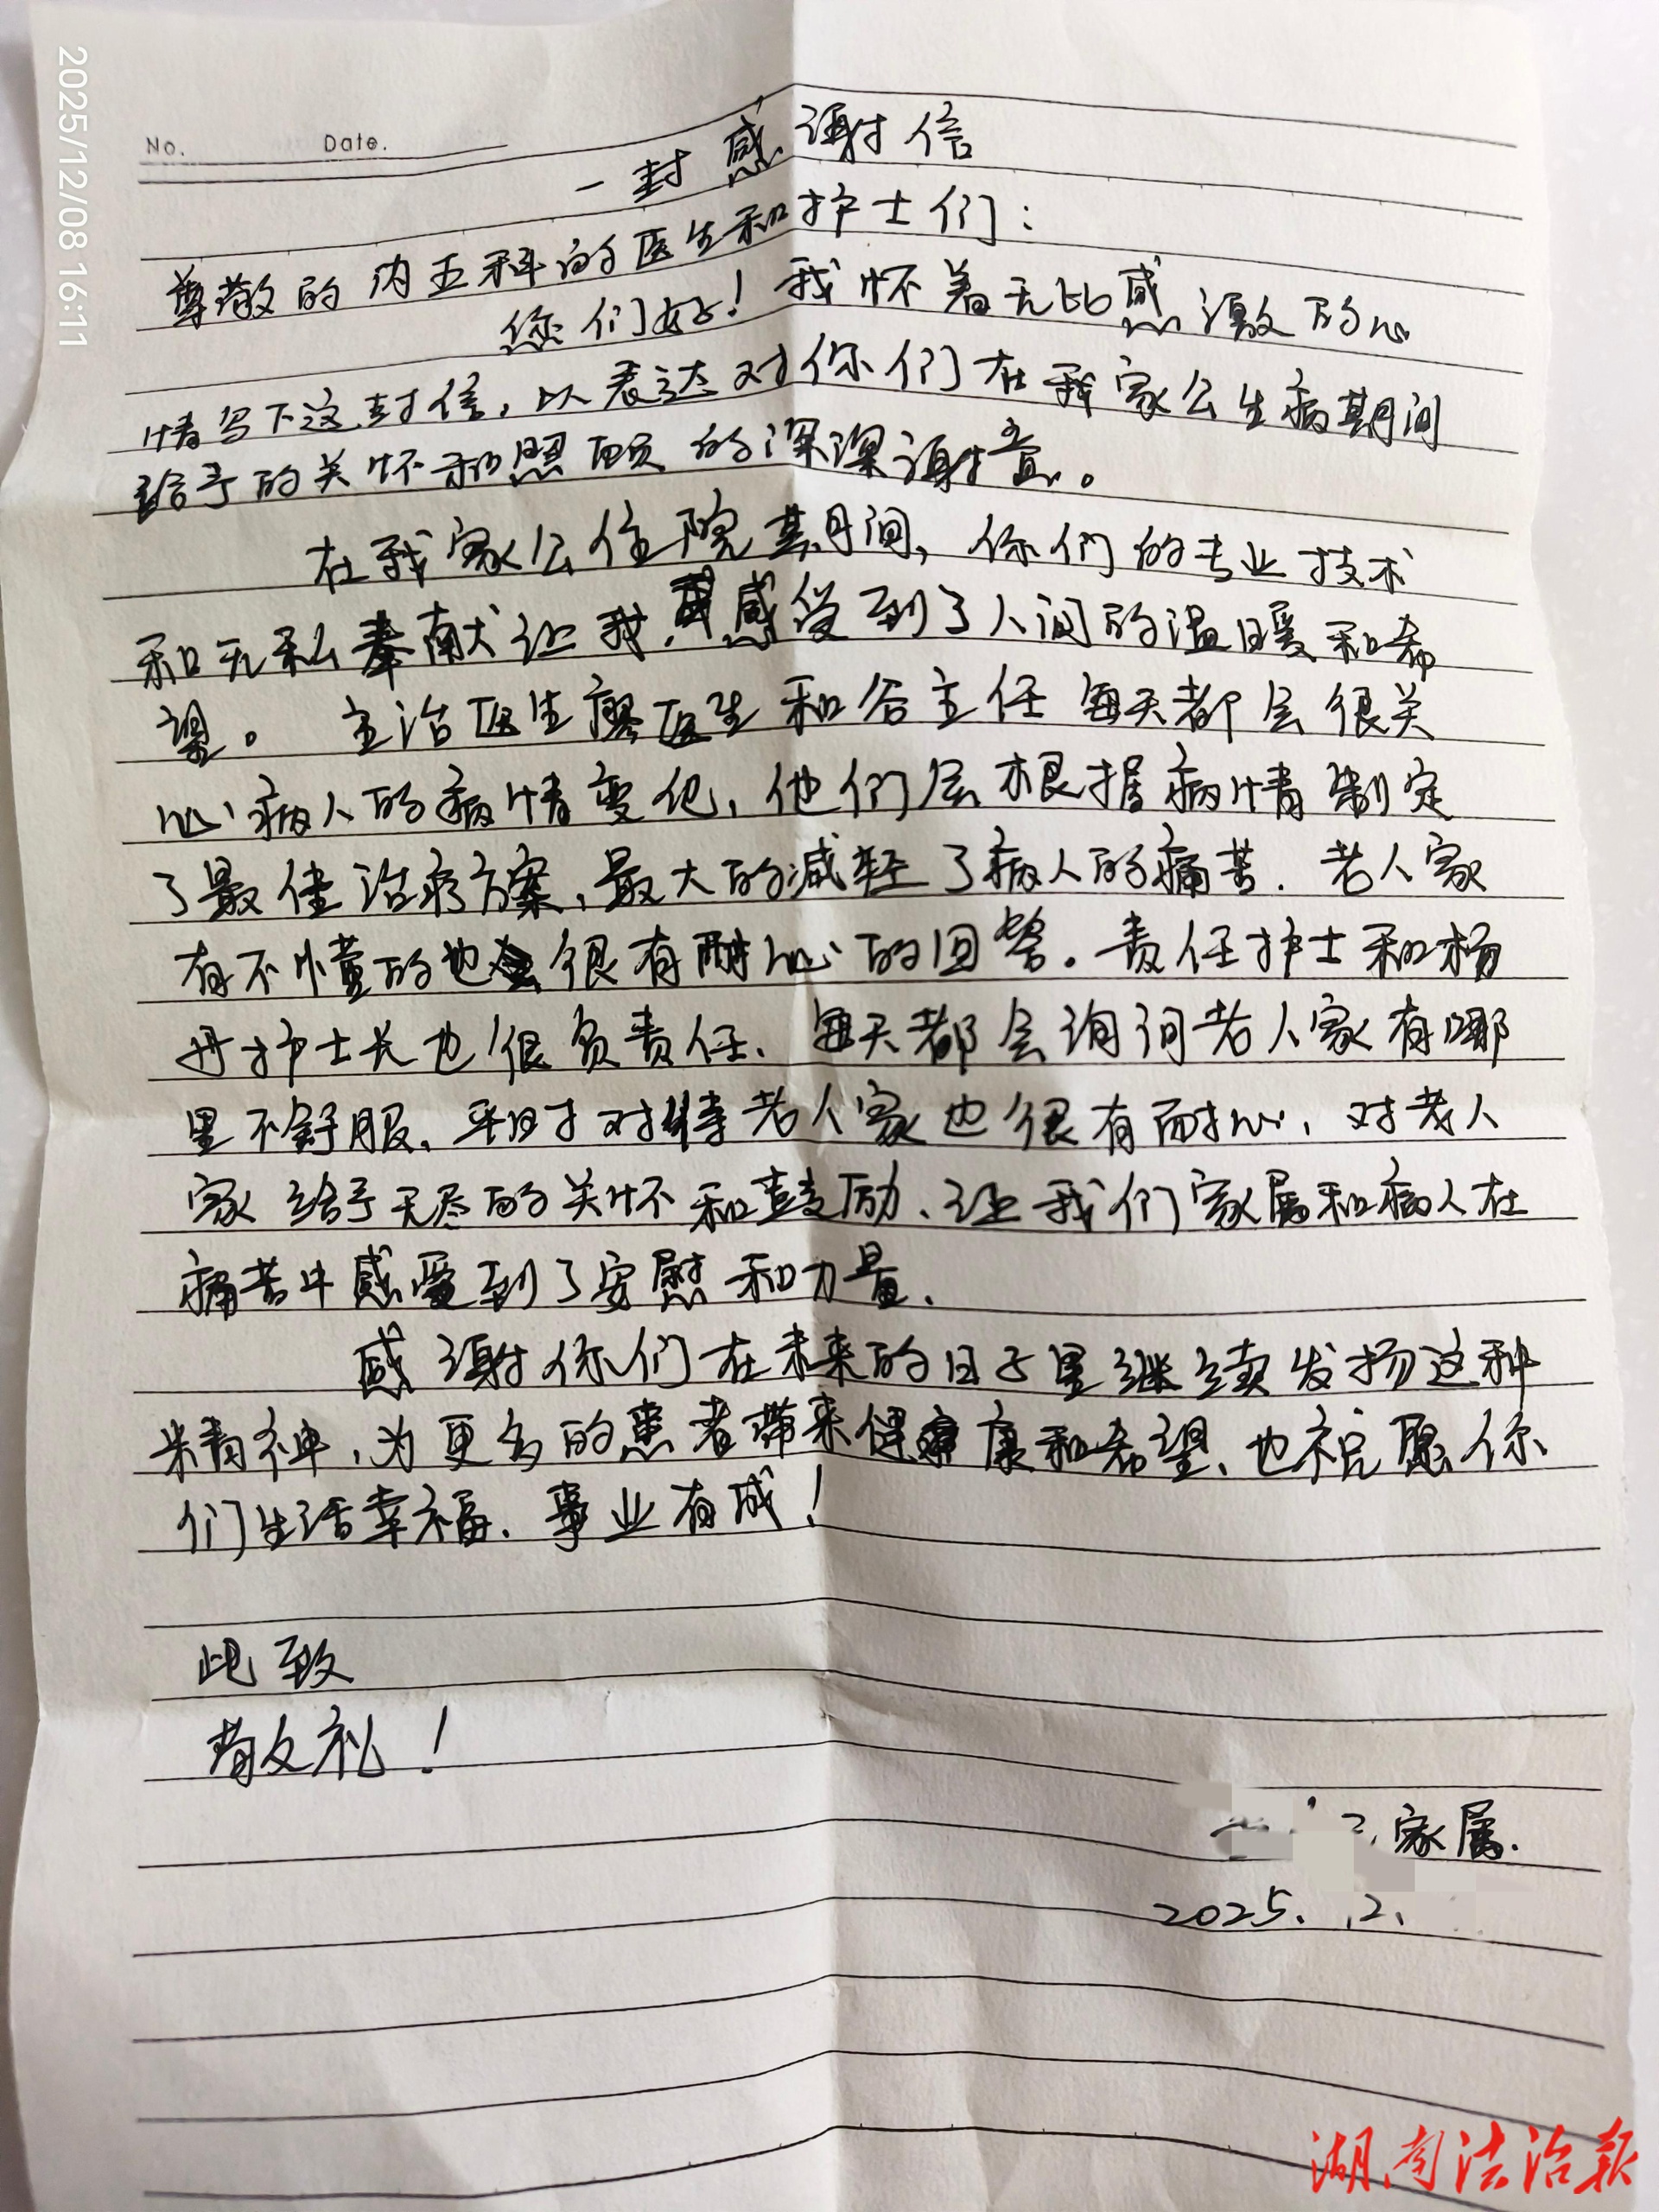 2025/12/08 16:11
No. Date.
一封感谢信
尊敬的内五科的医生和护士们：
您们好！我怀着无比感激的心
情写下这封信，以表达对你们在我家公生病期间
给予的关怀和照顾的深深谢意。
在我家公住院期间，你们的专业技术
和无私奉献让我感受到了人间的温暖和希
望。主治医生廖医生和谷主任每天都会很关
心病人的病情变化，他们会根据病情制定
了最佳治疗方案，最大的减轻了病人的痛苦．老人家
有不懂的也会很有耐心的回答。责任护士和杨
丹护士长也很负责任、每天都会询问老人家有哪
里不舒服、平时对待老人家也很有耐心，对老人
家给予无尽的关怀和鼓励、让我们家属和病人在
痛苦中感受到了安慰和力量．
感谢你们在未来的日子里继续发扬这种
精神，为更多的患者带来健康和希望、也祝愿你
们生活幸福．事业有成！
此致
敬礼！
家属．
2025. 12.
湖南法治报